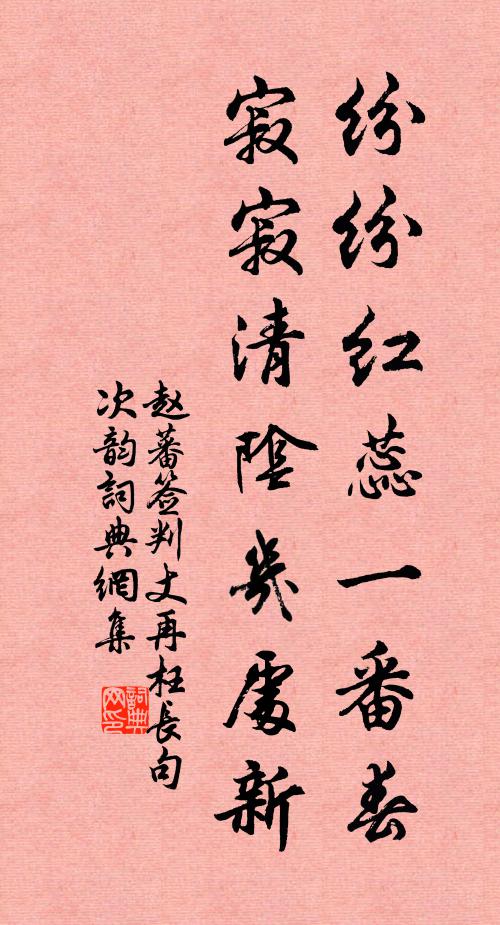 纷纷红蕊一番春
寂寂清陰幾處新
赵蕃签判丈再枉長句
次韵詞典網集
詞典网印